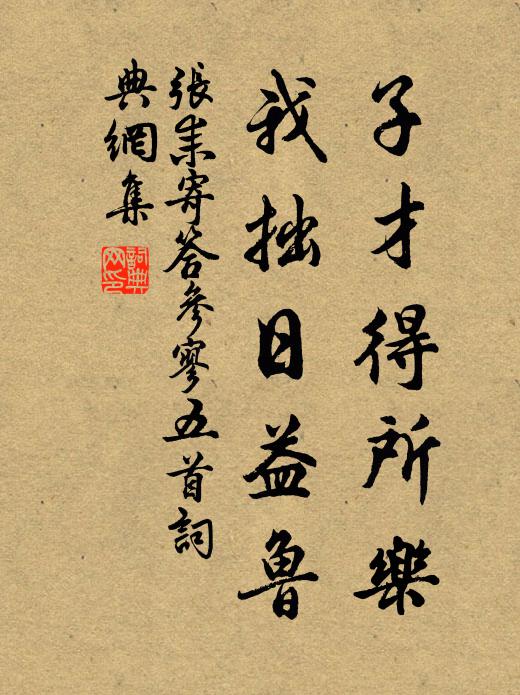 子才得所樂
我拙日益魯
張耒寄答參寥五首詞
典網集
詞典
网印